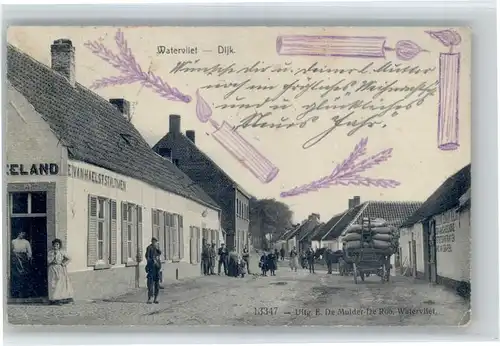 Watervliet — Dijk.
Wünsche dir u. deiner l. Mutter
noch ein fröhliches Weihnachts
und u. glückliches
Neues Jahr.
EELAND
E.VAN HAELST-STILTJVEN
13347 — Uitg. E. De Mulder-De Roo. Watervliet.